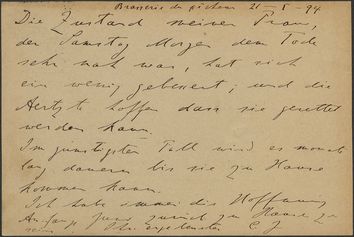 Brasserie du pêcheur 21 – 5 – 94
Die Zustand meiner Frau,
der Samstag Morgen dem Tode
sehr nah war, hat sich
ein wenig gebessert; und die
Aertzte hoffen dass sie gerettet
werden kann.
Im günstigsten Fall wird es monate
lang dauern bis sie zu Hause
kommen kann.
Ich habe immer die Hoffnung
Anfangs Juni zurück zu Hause zu
sein. Ihr ergebenster C. J.